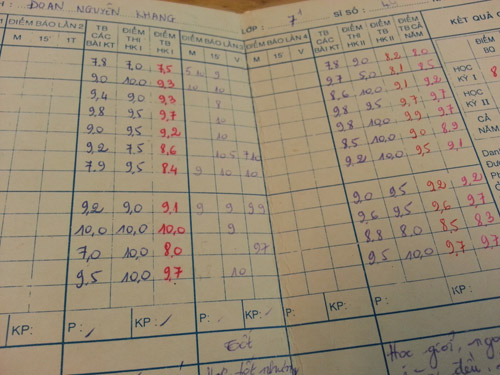 ĐOÀN NGUYÊN KHANG LỚP : 7¹ SĨ SỐ :
ĐIỂM BÁO LẦN 2 TB CÁC BÀI KT ĐIỂM THI HK I ĐIỂM TB HK I ĐIỂM BÁO LẦN 3 ĐIỂM BÁO LẦN 4 TB CÁC BÀI KT ĐIỂM THI HK II ĐIỂM TB HK II ĐIỂM TB CẢ NĂM KẾT QUẢ
M 15' 1T M 15' V M 15' V ĐIỂM
7,8 7,0 7,5 7,8 9,0 8,2 8,0
9,0 10,0 9,3 10 10 9,7 5,0 8,1 8,5 HỌC KỲ I
9,4 9,0 9,3 8 8,6 10,0 9,1 9,2
9,8 9,5 9,7 10 9,8 9,5 9,7 9,7 HỌC KỲ II
9,0 9,5 9,2 10 9,8 10,0 9,9 9,7
9,2 7,5 8,6 8,5 10,0 9,0 8,9 CẢ NĂM
7,9 9,5 8,4 9 10 10 9,2 10,0 9,5 9,1
9,2 9,0 9,1 9 9 9,9 9,0 9,5 9,2 9,2
10,0 10,0 10,0 9 9,6 9,5 9,6 9,7
7,0 10,0 8,0 9,7 8,8 8,0 8,5 8,3
9,5 10,0 9,7 10 9,5 10,0 9,7 9,7
KP: P: KP: P: KP: P: KP:
Tốt
Học giỏi,